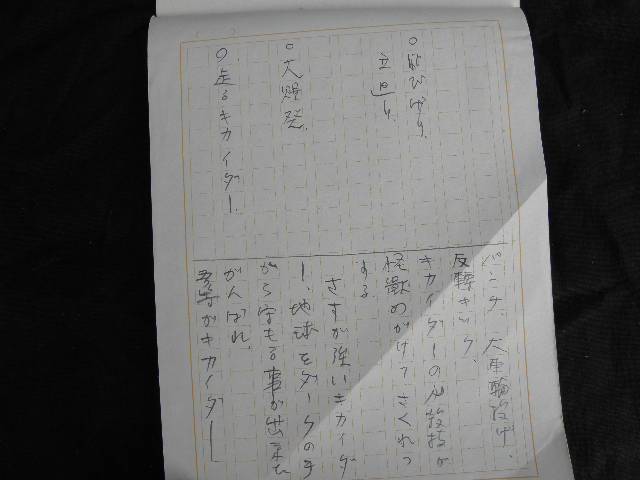 ○飛びげり、
立回り
○大爆発、
○走るキカイダー、
パンチ、大車輪投げ、
反転キック、
キカイダーの必殺技が
怪獣めがけてさくれつ
する。
さすが強いキカイダ
ー、地球をダークの手
から守もる事が出来た
がんばれ、
吾等がキカイダー